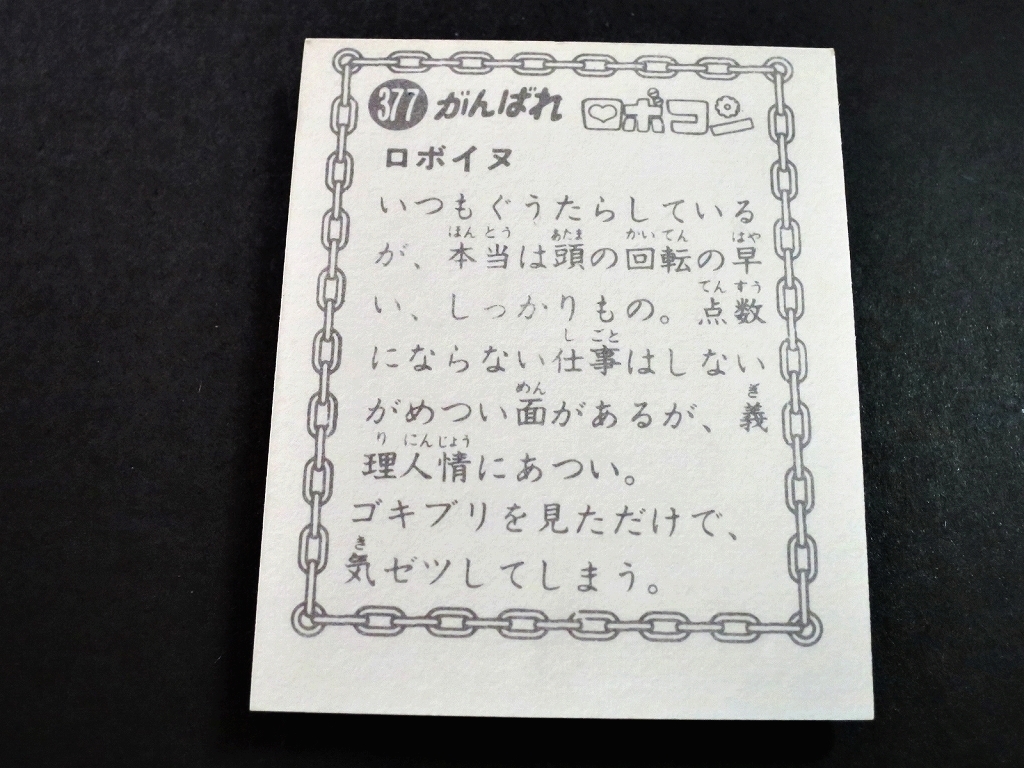 377 がんばれ ロボコン
ロボイヌ
いつもぐうたらしている
ほんとう あたま かいてん はや
が、本当は頭の回転の早
てんすう
い、しっかりもの。点数
しごと
にならない仕事はしない
めん ぎ
がめつい面があるが、義
り にんじょう
理人情にあつい。
ゴキブリを見ただけで、
き
気ゼツしてしまう。